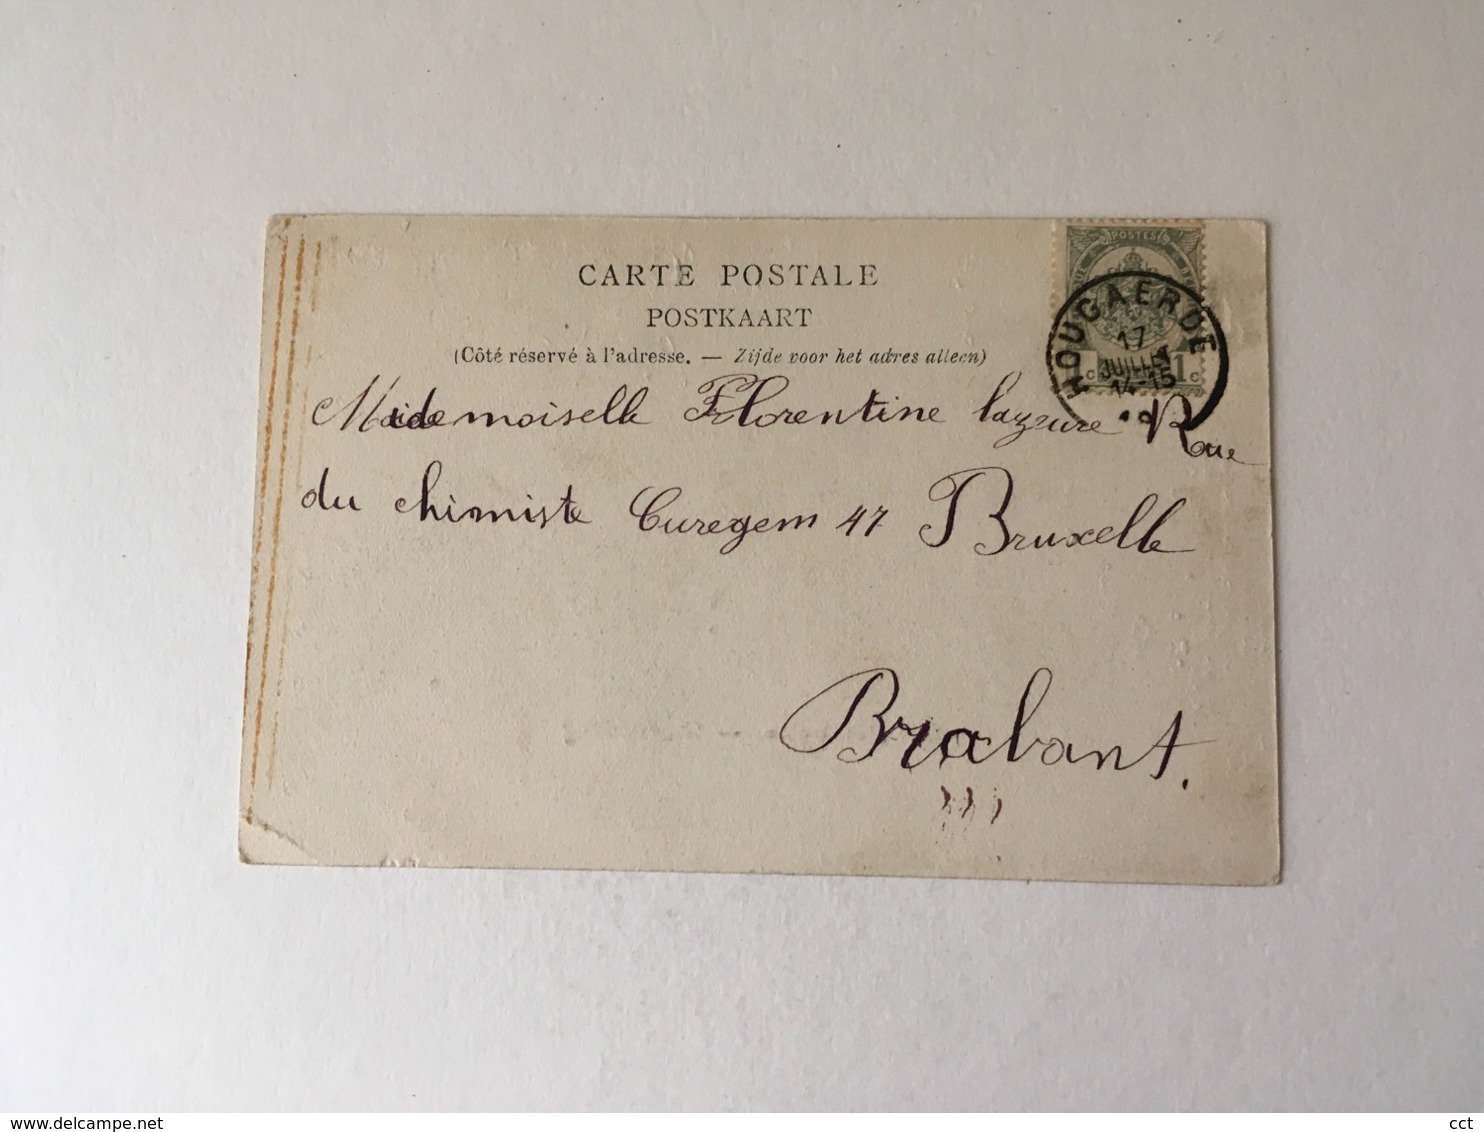 CARTE POSTALE
POSTKAART
(Côté réservé à l'adresse. — Zijde voor het adres alleen)
POSTES
1
C
C
HOUGAERDE
17
JUILLET
14-15
Maidemoiselle Florentine lazure Roue
du chimiste Curegem 47 Bruxelle
Brabant.
delcampe.net
cct